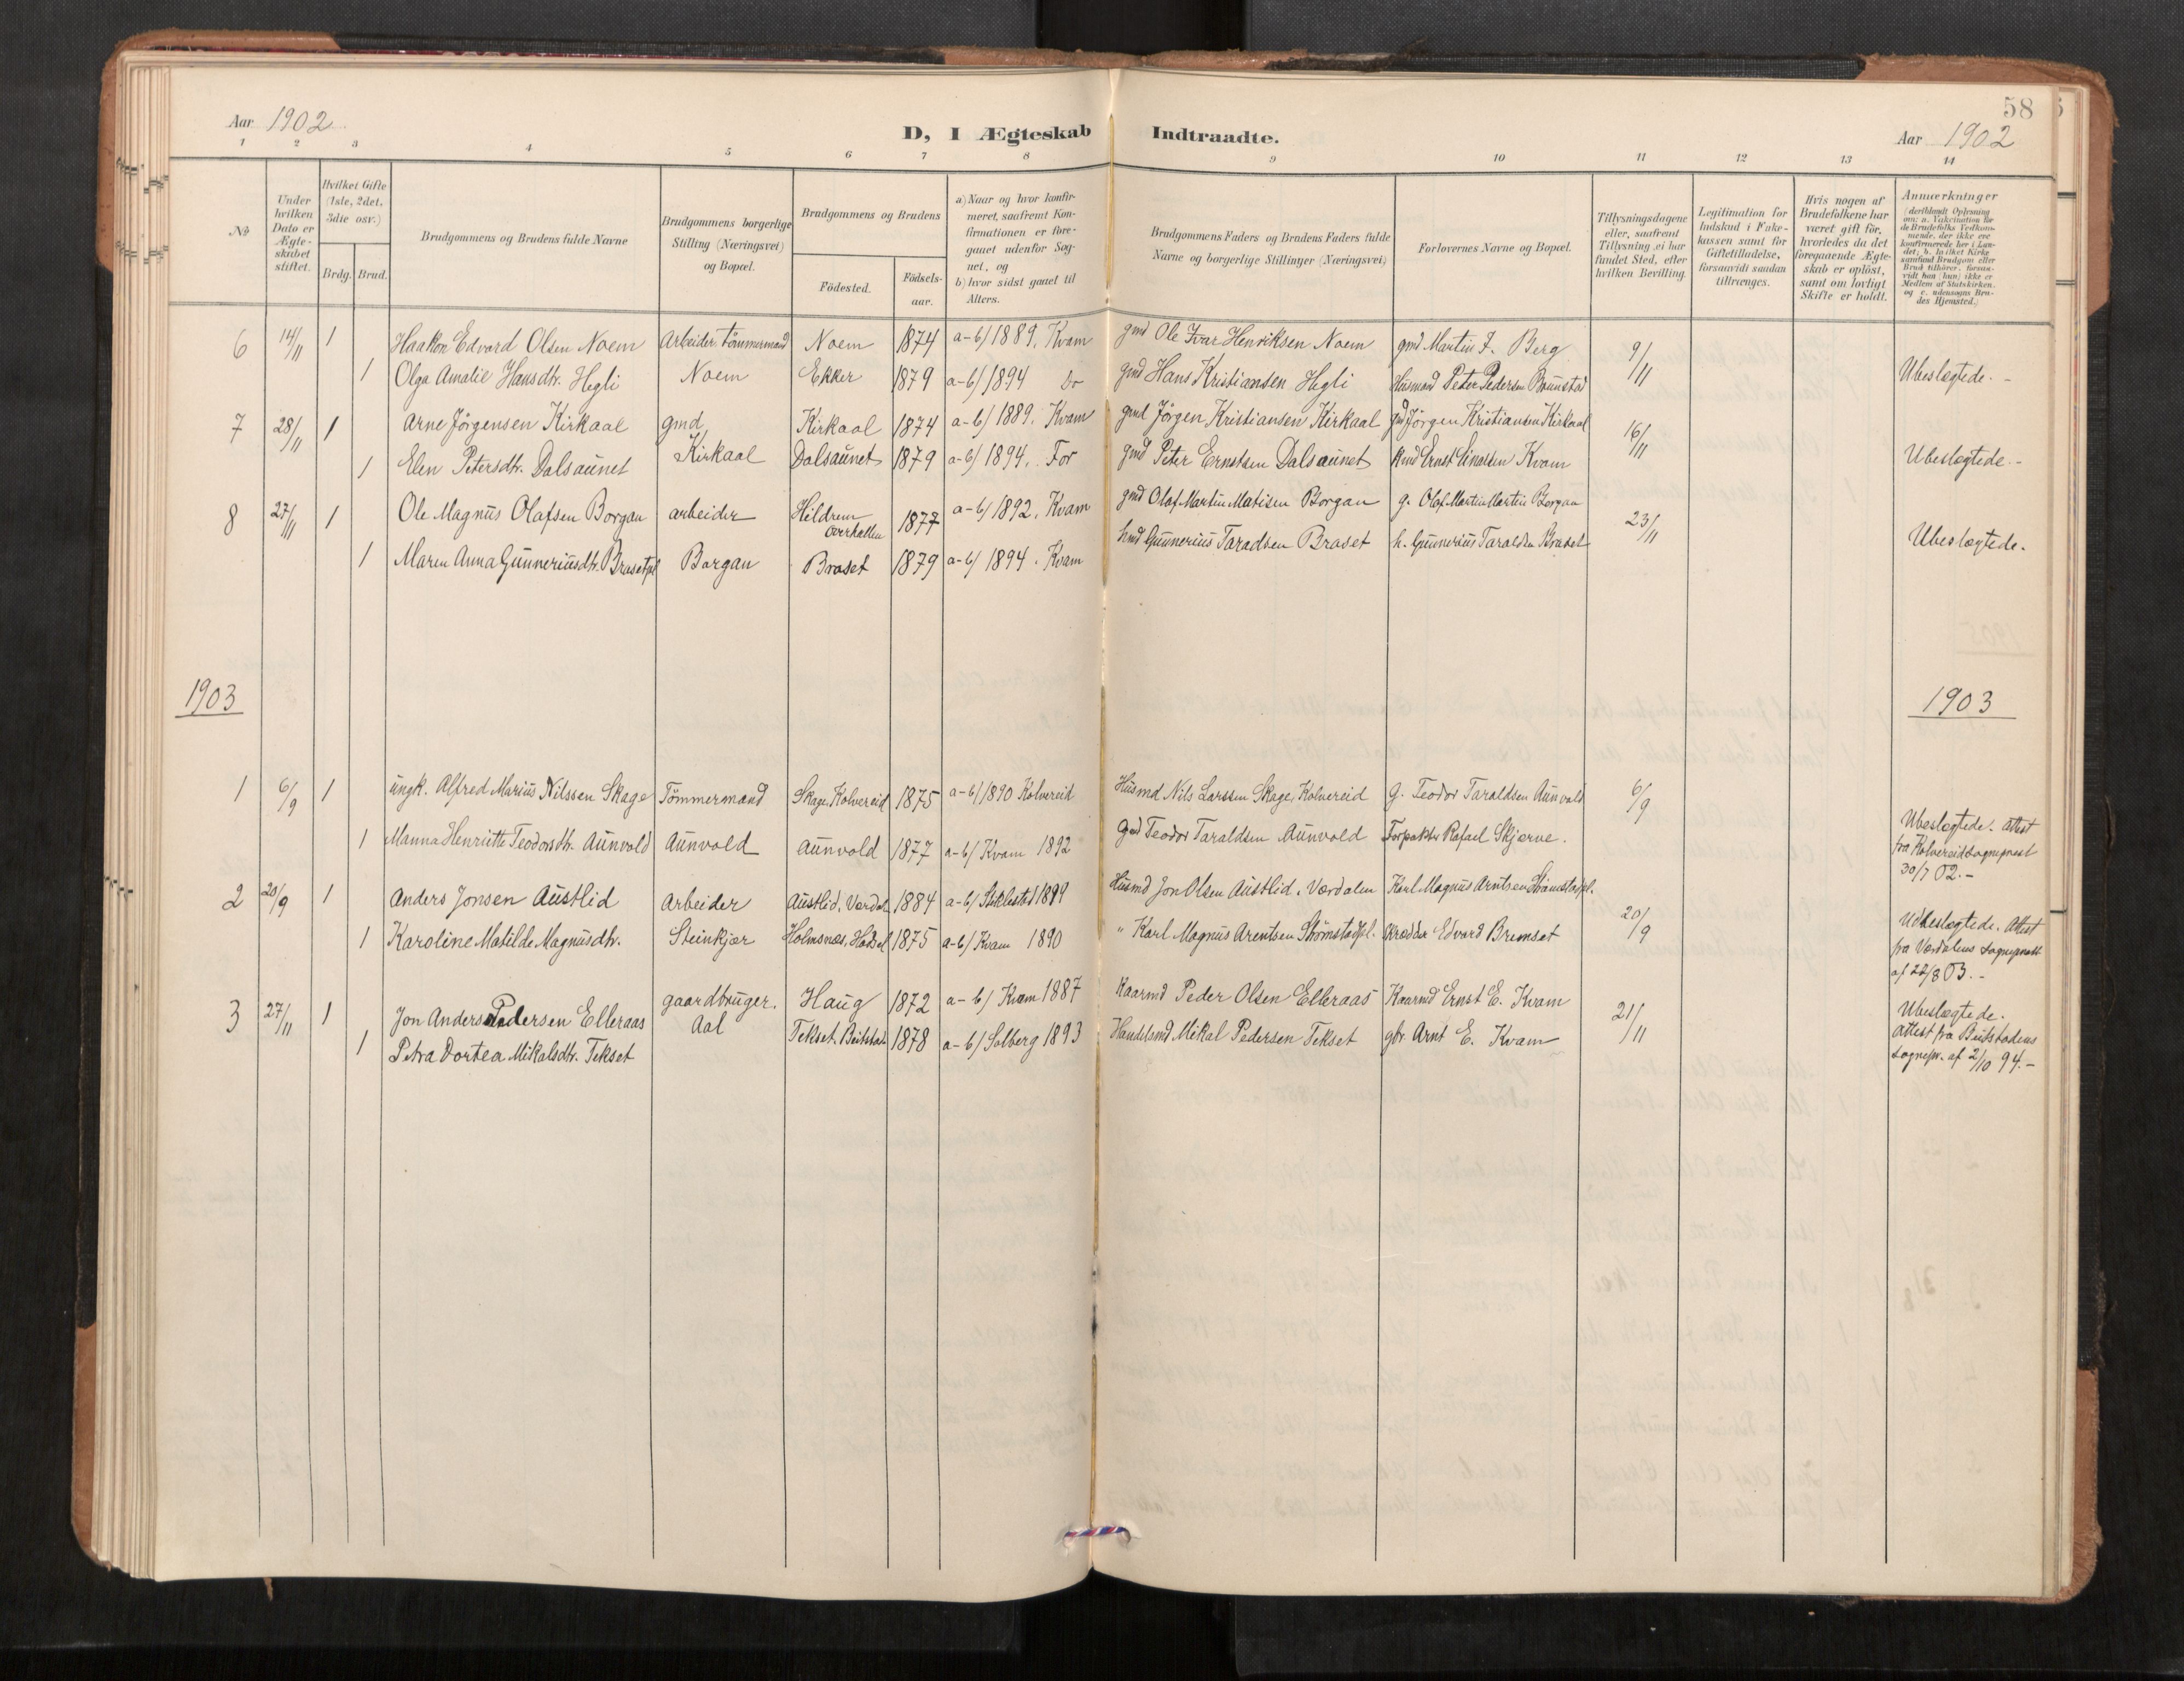 58
Aar 1902
D, I Ægteskab Indtraadte.
Aar 1902
1 2 3 4 5 6 7 8 9 10 11 12 13 14
No
Under hvilken Dato er Ægteskabet stiftet.
Hvilket Gifte (1ste, 2det, 3die osv.)
Brdg. Brud.
Brudgommens og Brudens fulde Navne
Brudgommens borgerlige Stilling (Næringsvei) og Bopæl.
Brudgommens og Brudens
Födested.
Födsels-aar.
a) Naar og hvor konfirmeret, saafremt Konfirmationen er foregaaet udenfor Sognet, og
b) hvor sidst gaaet til Alters.
Brudgommens Faders og Brudens Faders fulde Navne og borgerlige Stillinger (Næringsvei)
Forlovernes Navne og Bopæl.
Tillysningsdagene eller, saafremt Tillysning ei har fundet Sted, efter hvilken Bevilling.
Legitimation for Indskud i Enkekassen samt for Giftetilladelse, forsaavidt saadan tiltrænges.
Hvis nogen af Brudefolkene har været gift för, hvorledes da det foregaaende Ægteskab er oplöst, samt om lovligt Skifte er holdt.
Anmærkninger
6 14/11 1 Haakon Edvard Olsen Noem Arbeider, tömmermand Noem 1874 a-b/ 1889. Kvam gmd Ole Ivar Henriksen Noem gmd Martin J. Berg 9/11
1 Olga Amalie Hansdtr. Hegli Noem Ekker 1879 a-b/ 1894 do gmd Hans Kristiansen Hegli Husmand Peter Pedersen Brunstad Ubeslegtede. -
7 28/11 1 Arne Jörgensen Kirkaal gmd Kirkaal 1874 a-b/ 1889. Kvam gmd Jörgen Kristiansen Kirkaal gmd Jörgen Kristiansen Kirkaal 16/11
1 Elen Petersdtr. Dalsaunet Kirkaal Dalsaunet 1879 a-b/ 1894. For gmd Peter Ernstsen Dalsaunet Ernst Kvam Ubeslegtede. -
8 27/11 1 Ole Magnus Olafsen Borgan arbeider Hildrem Overhallen 1877 a-b/ 1892. Kvam gmd Olaf Martin Matisen Borgan g. Olaf Martin Borgan 23/11
1 Maren Anna Gunneriusdtr. Brasetpl Borgan Braset 1879 a-b/ 1894. Kvam hmd Gunnerius Taradsen Braset h. Gunnerius Taraldsen Braset Ubeslegtede.
1903 1903
1 6/9 1 ungk. Alfred Marius Nilssen Skage Tömmermand Skage, Kolvereid 1875 a-b/ 1890 Kolvereid Husmd Nils Larssen Skage, Kolvereid g. Teodor Taraldsen Aunvold 6/9
1 Manna Henriette Teodorsdtr. Aunvold Aunvold Aunvold 1877 a-b/ Kvam 1892 gmd Teodor Taraldsen Aunvold Forpakter Rafael Skjerve. Ubeslegtede. Attest
fra Kolvereid Sogneprest
30/7 02. -
2 20/9 1 Anders Jonsen Austlid Arbeider Austlid, Værdal 1884 a-b/ Stiklestad 1899 Husmd Jon Olsen Austlid, Værdalen Karl Magnus Arntsen Strömstadpl. 20/9
1 Karoline Matilde Magnusdtr. Steinkjær Holmsnæs, Hadsel 1875 a-b/ Kvam 1890 " Karl Magnus Arentsen Strömstadpl. Skrædder Edvard Bremset Ubeslegtede. Attest
fra Værdalens Sogneprest
af 22/8 03. -
3 27/11 1 Jon Anders Pedersen Elleraas gaardbruger. Haug 1872 a-b/ Kvam 1887 Kaarmd Peder Olsen Elleraas Kaarmd Ernst E. Kvam 21/11
1 Petra Dortea Mikalsdtr. Tekset Aal Tekset. Beitstad 1878 a-b/ Solberg 1893 Handelsmd Mikal Pedersen Tekset gbr. Arnt E. Kvam Ubeslegtede.
Attest fra Beitstadens
Sognepr. af 2/10 94. -